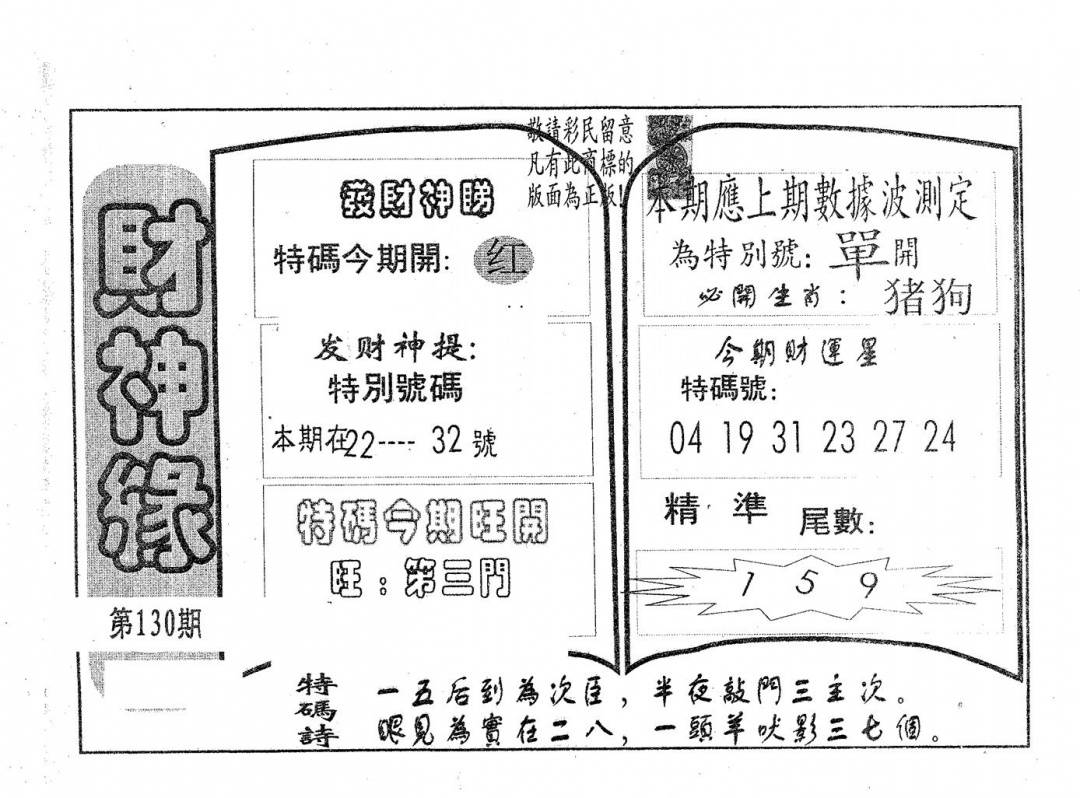 財神緣
第130期
敬請彩民留意
凡有此商標的
版面為正版!
發財神睇
特碼今期開: 红
发财神提:
特別號碼
本期在22---- 32號
特碼今期旺開
旺:第三門
本期應上期數據波測定
為特別號: 單開
必開生肖: 猪狗
今期財運星
特碼號:
04 19 31 23 27 24
精準 尾數:
1 5 9
特碼詩
一五后到為次臣,半夜敲門三主次。
眼見為實在二八,一頭羊吠影三七個。